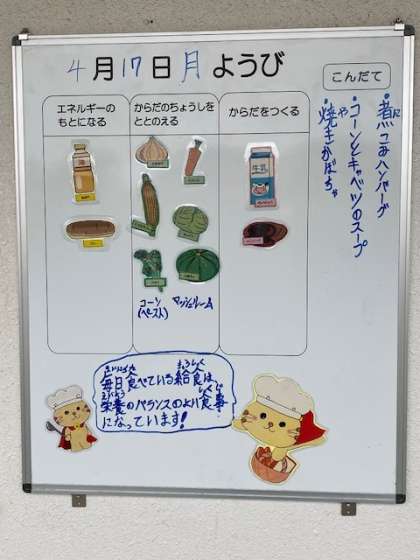 4月17日月ようび
こんだて
煮こみハンバーグ
コーンとキャベツのスープ
焼きかぼちゃ
エネルギーの
もとになる
からだのちょうしを
ととのえる
からだをつくる
牛乳
コーン
(ペースト)
マッシュルーム
毎日食べている給食は、
栄養のバランスのよい食事
になっています!